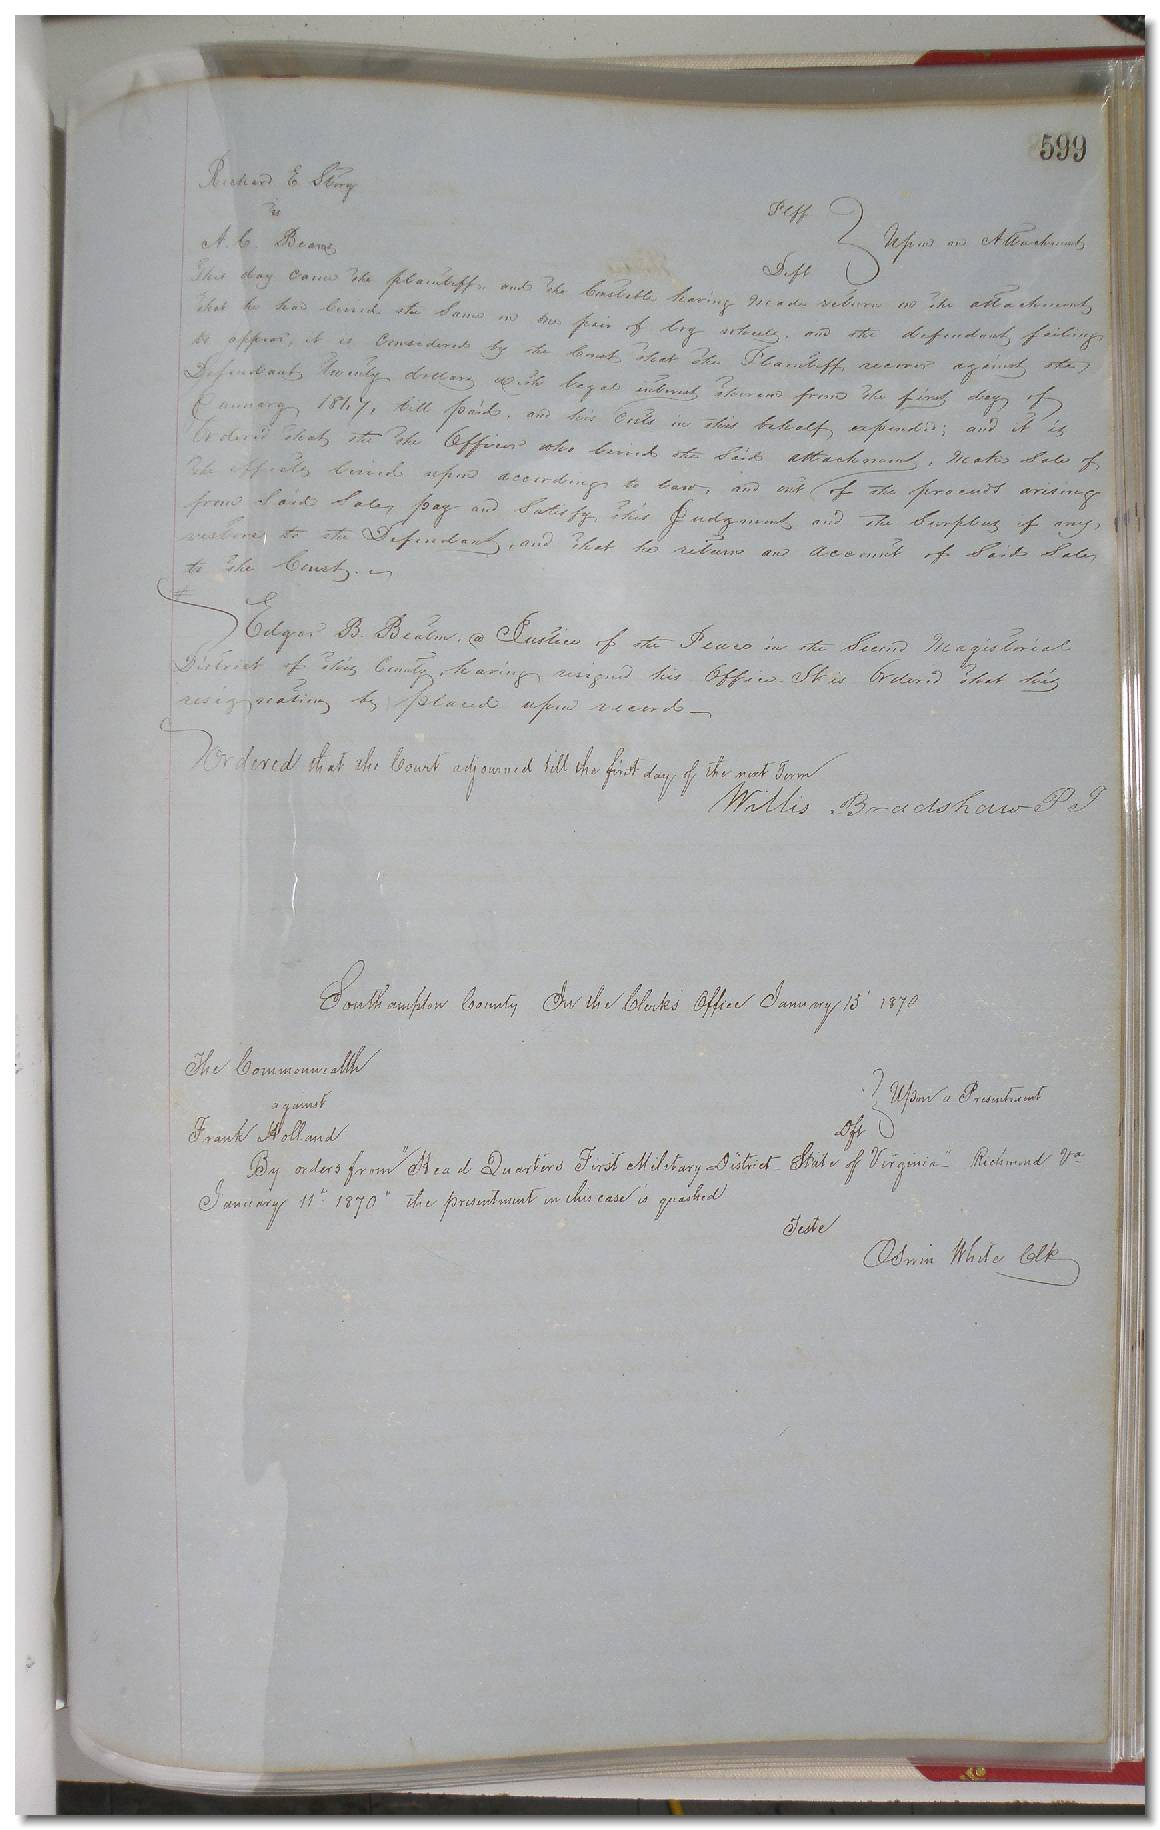 599
Richard E Story
vs
Plff
A. C. Beans
Upon an Attachment
Deft
This day came the plaintiff and the Constable having made return on the attachment
that he had levied the same on one pair of log wheels, and the defendant failing
to appear, it is considered by the Court that the Plaintiff recover against the
Defendant Twenty dollars with legal interest thereon from the first day of
January 1867, till paid, and his costs in this behalf expended; and it is
Ordered that the the Officer who levied the said attachment, make Sale of
the effects levied upon according to law, and out of the proceeds arising
from Said Sale, pay and Satisfy this Judgment and the Surplus if any,
restore to the Defendant, and that he return an account of Said Sale
to the Court.
Edgar B. a Justice of the Peace in the Second Magisterial
District of this County having resigned his Office It is Ordered that his
resignation be placed upon record
Ordered that the Court adjourned till the first day of the next Term
Willis Bradshaw P J
Southampton County In the Clerks Office January 15 1870
The Commonwealth
against
Upon a Presentment
Frank Holland
Dft
By orders from "Head Quarters First Military District State of Virginia" Richmond Va
January 11th 1870" the presentment in this case is quashed
Teste
Edwin White Clk